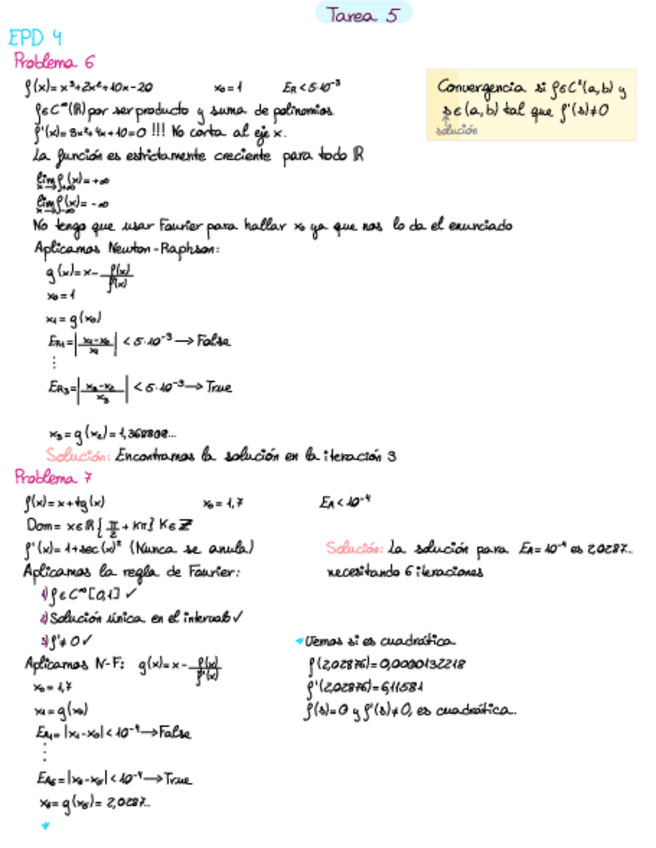 Tarea 5
EPD 4
Problema 6
f(x)=x³+2x²+10x-20 x₀=1 E_R<5·10⁻³
Convergencia si f∈C²(a,b) y
s∈(a,b) tal que f'(s)≠0
solución
f∈C^∞(ℝ) por ser producto y suma de polinomios
f'(x)=3x²+4x+10=0 !!! No corta al eje x.
La función es estrictamente creciente para todo ℝ
lim f(x)=+∞
x→+∞
lim f(x)=-∞
x→-∞
No tengo que usar Fourier para hallar x₀ ya que nos lo da el enunciado
Aplicamos Newton-Raphson:
g(x)=x-f(x)/f'(x)
x₀=1
x₁=g(x₀)
E_R1=|(x₁-x₀)/x₁|<5·10⁻³→False
⋮
E_R3=|(x₃-x₂)/x₃|<5·10⁻³→True
x₃=g(x₂)=1,368808...
Solución: Encontramos la solución en la iteración 3
Problema 7
f(x)=x+tg(x) x₀=1,7 E_A<10⁻⁴
Dom= x∈ℝ{π/2+Kπ} K∈ℤ
f'(x)=1+sec(x)² (Nunca se anula)
Solución: La solución para E_A=10⁻⁴ es 2,0287...
necesitando 6 iteraciones
Aplicamos la regla de Fourier:
1) f∈C^∞[0,1] ✓
2) Solución única en el intervalo ✓
3) f'≠0 ✓
Aplicamos N-F: g(x)=x-f(x)/f'(x)
x₀=1,7
x₁=g(x₀)
E_A1=|x₁-x₀|<10⁻⁴→False
⋮
E_A6=|x₆-x₅|<10⁻⁴→True
x₆=g(x₅)=2,0287...
*
* Vemos si es cuadrática
f(2,02876)=0,0000132218
f'(2,02876)=6,11581
f(s)=0 y f'(s)≠0, es cuadrática.